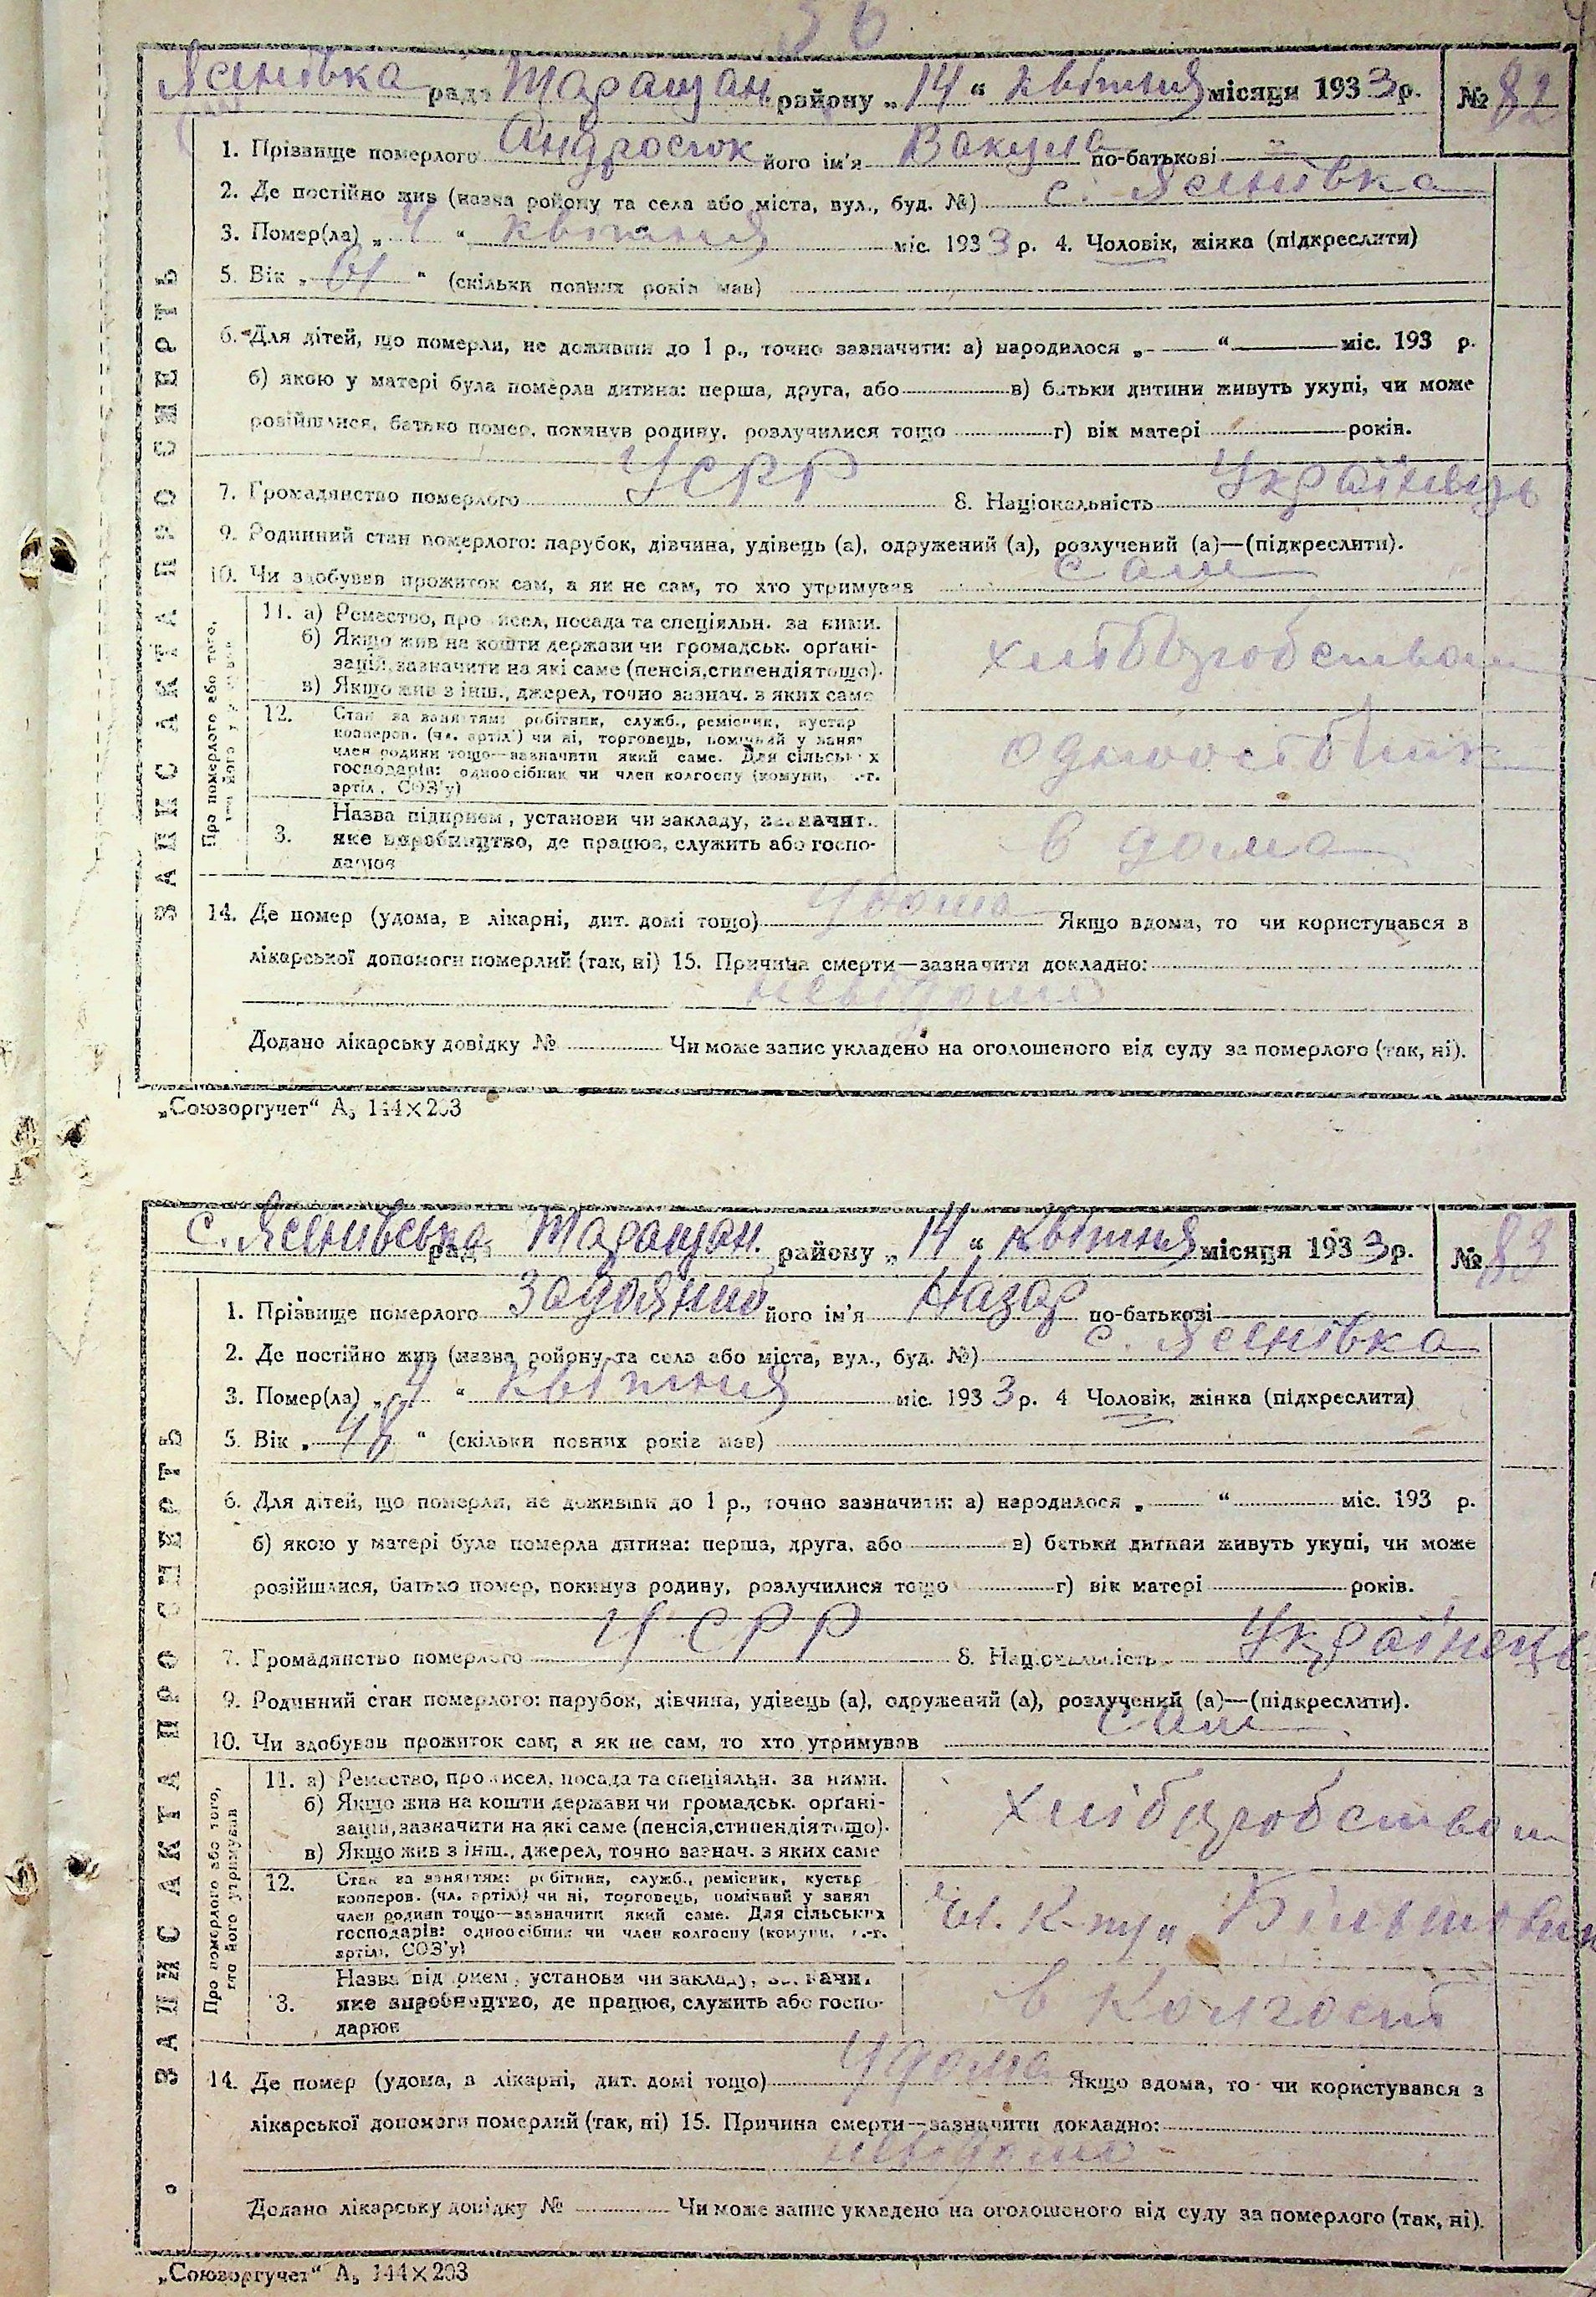 36
Ясенівка рада Таращан. району „14“ квітня місяця 1933 р. № 82
1. Прізвище померлого Андросюк його ім'я Вакула по-батькові "
2. Де постійно жив (назва району та села або міста, вул., буд. №) с. Ясенівка
3. Помер(ла) „4“ квітня міс. 1933 р. 4. Чоловік, жінка (підкреслити)
5. Вік „61“ (скільки повних років мав)
6. Для дітей, що померли, не доживши до 1 р., точно зазначити: а) народилося „—“ — міс. 193 р.
б) якою у матері була померла дитина: перша, друга, або — в) батьки дитини живуть укупі, чи може
розійшлися, батько помер, покинув родину, розлучилися тощо — г) вік матері — років.
7. Громадянство померлого УСРР 8. Національність Українець
9. Родинний стан померлого: парубок, дівчина, удівець (а), одружений (а), розлучений (а)—(підкреслити).
10. Чи здобував прожиток сам, а як не сам, то хто утримував сам
ЗАПИС АКТА ПРО СМЕРТЬ
Про померлого або того,
11. а) Ремество, промисел, посада та спеціяльн. за ними.
б) Якщо жив на кошти держави чи громадськ. орґані-
зацій, зазначити на які саме (пенсія, стипендія тощо).
в) Якщо жив з інш., джерел, точно зазнач. з яких саме
хлібопробством
12. Стан за заняттям: робітник, служб., ремісник, кустар
кооперов. (чл. артілі) чи ні, торговець, помічний у занят
член родини тощо—зазначити який саме. Для сільських
господарів: одноосібник чи член колгоспу (комуни, с.-г.
артілі, СОЗ'у)
одноосібник
3. Назва підприєм., установи чи закладу, зазначит.
яке виробництво, де працює, служить або госпо-
дарює
в дома
14. Де помер (удома, в лікарні, дит. домі тощо) удома Якщо вдома, то чи користувався з
лікарської допомоги померлий (так, ні) 15. Причина смерти—зазначити докладно:
невідомо
Додано лікарську довідку № Чи може запис укладено на оголошеного від суду за померлого (так, ні).
„Союзоргучет“ А5 144×203
с. Ясенівська рада Таращан. району „14“ квітня місяця 1933 р. № 83
1. Прізвище померлого його ім'я Назар по-батькові
2. Де постійно жив (назва району та села або міста, вул., буд. №) с. Ясенівка
3. Помер(ла) „4“ квітня міс. 1933 р. 4 Чоловік, жінка (підкреслити)
5. Вік „48“ (скільки повних років мав)
6. Для дітей, що померли, не доживши до 1 р., точно зазначити: а) народилося „—“ — міс. 193 р.
б) якою у матері була померла дитина: перша, друга, або — в) батьки дитини живуть укупі, чи може
розійшлися, батько помер, покинув родину, розлучилися тощо — г) вік матері — років.
7. Громадянство померлого УСРР 8. Національність Українець
9. Родинний стан померлого: парубок, дівчина, удівець (а), одружений (а), розлучений (а)—(підкреслити).
10. Чи здобував прожиток сам, а як не сам, то хто утримував сам
ЗАПИС АКТА ПРО СМЕРТЬ
Про померлого або того,
хто його утримував
11. а) Ремество, промисел, посада та спеціяльн. за ними.
б) Якщо жив на кошти держави чи громадськ. орґані-
зацій, зазначити на які саме (пенсія, стипендія тощо).
в) Якщо жив з інш., джерел, точно зазнач. з яких саме
хлібопробством
12. Стан за заняттям: робітник, служб., ремісник, кустар
кооперов. (чл. артілі) чи ні, торговець, помічний у занят
член родини тощо—зазначити який саме. Для сільських
господарів: одноосібник чи член колгоспу (комуни, с.-г.
артілі, СОЗ'у)
чл. к-пу „Більшовик
3. Назва підприєм., установи чи закладу, зазначит.
яке виробництво, де працює, служить або госпо-
дарює
в колгоспі
14. Де помер (удома, в лікарні, дит. домі тощо) удома Якщо вдома, то чи користувався з
лікарської допомоги померлий (так, ні) 15. Причина смерти—зазначити докладно:
невідомо
Додано лікарську довідку № Чи може запис укладено на оголошеного від суду за померлого (так, ні).
„Союзоргучет“ А5 144×203